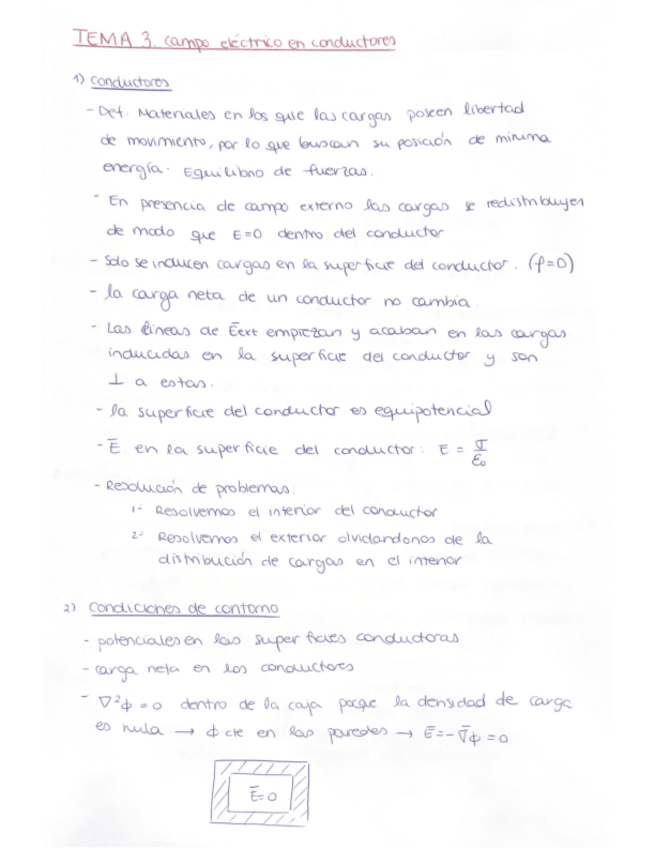 TEMA 3. campo eléctrico en conductores
1) conductores
- Def. Materiales en los que las cargas poseen libertad
de movimiento, por lo que buscan su posición de mínima
energía. Equilibrio de fuerzas.
- En presencia de campo externo las cargas se redistribuyen
de modo que E=0 dentro del conductor
- Solo se inducen cargas en la superficie del conductor. (ρ=0)
- la carga neta de un conductor no cambia.
- Las líneas de Ēext empiezan y acaban en las cargas
inducidas en la superficie del conductor y son
⊥ a estas.
- la superficie del conductor es equipotencial
- Ē en la superficie del conductor: E = σ/ε₀
- Resolución de problemas:
1º Resolvemos el interior del conductor
2º Resolvemos el exterior olvidandonos de la
distribución de cargas en el interior
2) Condiciones de contorno
- potenciales en las superficies conductoras
- carga neta en los conductores
- ∇²φ = 0 dentro de la caja porque la densidad de carga
es nula → φ cte en las paredes → Ē=-∇̄φ = 0
Ē=0